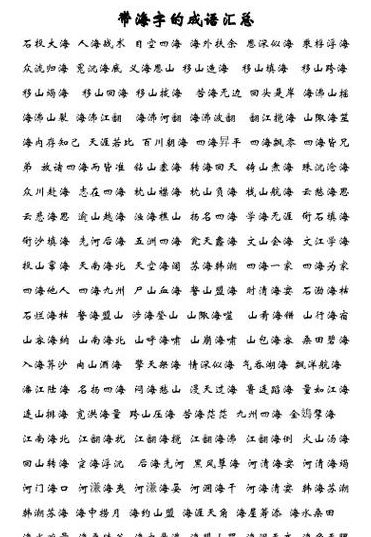 带海字的成语汇总
石投大海 人海战术 目空四海 海外扶余 恩深似海 乘桴浮海
众流归海 冤沉海底 义海恩山 移山造海 移山填海 移山跨海
移山竭海 移山回海 移山拔海 苦海无边 回头是岸 海沸山摇
海沸山裂 海沸江翻 海沸河翻 海沸波翻 翻江搅海 山陬海澨
海内存知己 天涯若比 百川朝海 四海昇平 四海飘零 四海皆兄
弟 放诸四海而皆准 钻山塞海 转海回天 铸山煮海 珠沉沧海
众川赴海 志在四海 枕山襟海 枕山负海 栈山航海 云愁海思
云悲海思 逾山越海 浊海樵山 扬名四海 学海无涯 衔石填海
衔沙填海 先河后海 五洲四海 瓮天蠡海 文山会海 文江学海
投山窜海 天南海北 天空海阔 苏海韩潮 四海一家 四海为家
四海他人 四海九州 尸山血海 誓山盟海 时清海宴 石泐海枯
石烂海枯 誓海盟山 涉海登山 山陬海噬 山肴海错 山行海宿
山容海纳 山南海北 山呼海啸 山崩海啸 山包海容 桑田碧海
入海算沙 肉山酒海 擎天架海 情深似海 气吞湖海 飘洋航海
海江陆海 名扬四海 闷海愁山 漫天过海 鲁连蹈海 量如江海
连山排海 宽洪海量 跨山压海 苦海茫茫 九州四海 金鳷擘海
江南海北 江翻海扰 江翻海搅 江翻海沸 江翻海倒 火山汤海
回山转海 宦海浮沉 后海先河 黑风孽海 河清海宴 河清海竭
河门海口 河溓海夷 河溓海晏 河涸海干 河海清宴 韩海苏潮
韩潮苏海 海中捞月 海约山盟 海涯天角 海屋筹添 海水桑田